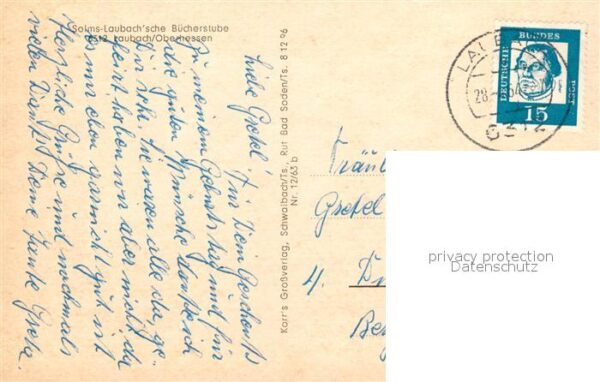 Solms-Laubach'sche Bücherstube
6312 Laubach/Oberhessen
Liebe Gretel! Für Dein Geschenk
zu meinem Geburtstag und für
die guten Wünsche danke ich
Dir sehr. Sie waren alle da, ge-
feiert haben wir aber nicht, da
es mir eben garnicht gut ist
Herzliche Grüße und nochmals
vielen Dank Deine Tante Greta.
Korr's Großverlag, Schwalbach/Ts., Ruf Bad Soden/Ts. 8 12 96
Nr. 12/63 b
DEUTSCHE BUNDESPOST
15
LAUB
28.
6312
Fräul
Gretel
4.
privacy protection
Datenschutz